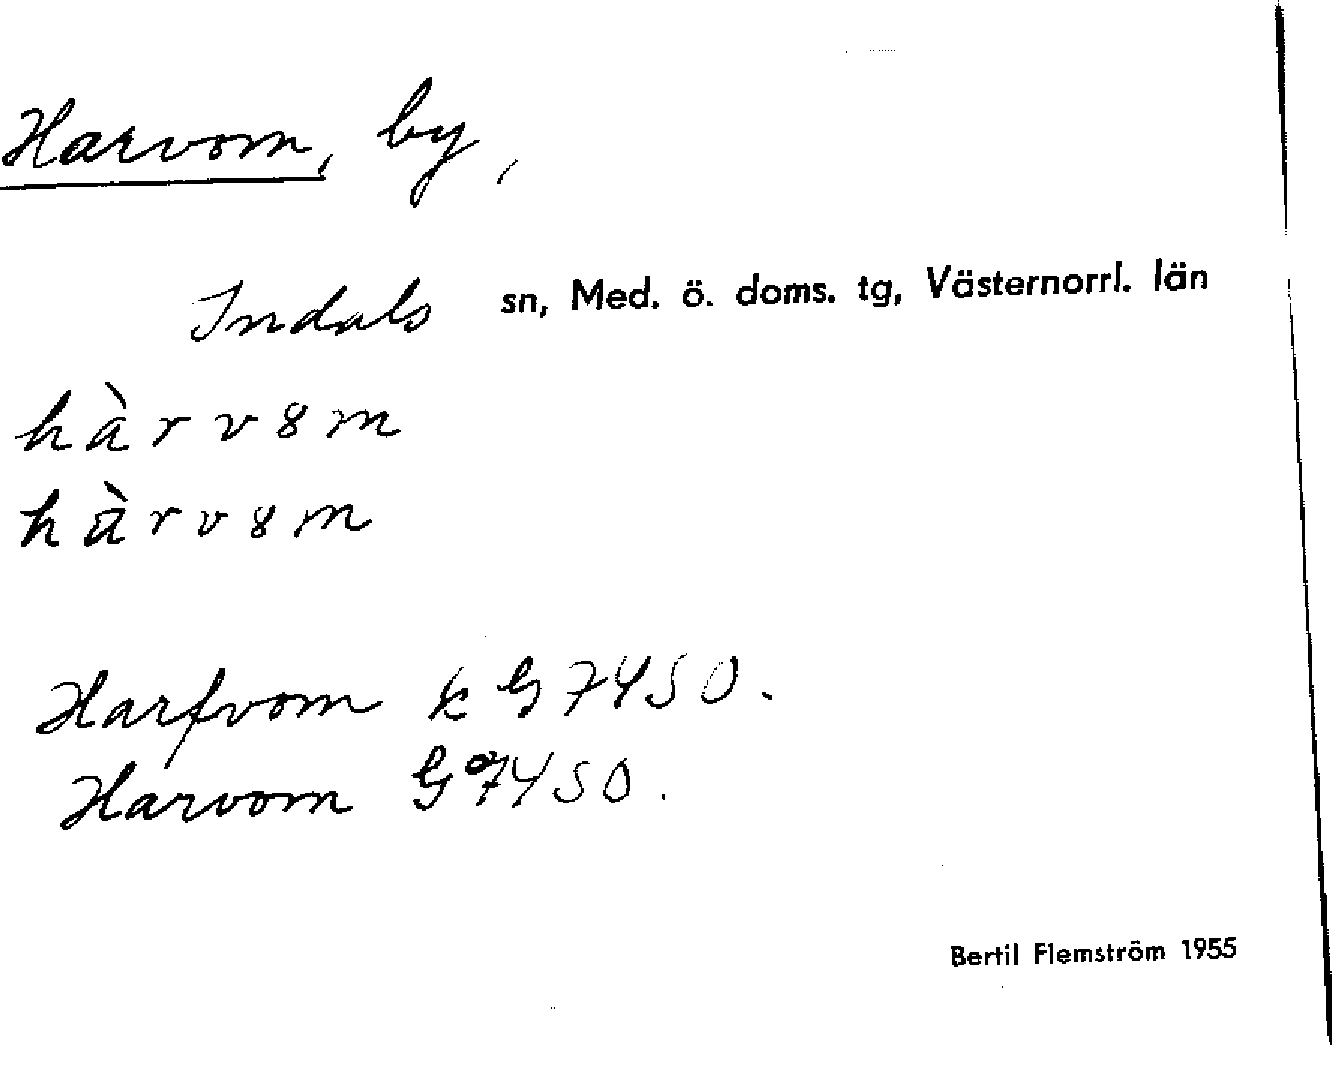 Harvom, by,
Indals sn, Med. ö. doms. tg, Västernorrl. län
hàrv8m
hàrv8m
Harfvom k G 7450.
Harvom G 7450.
Bertil Flemström 1955